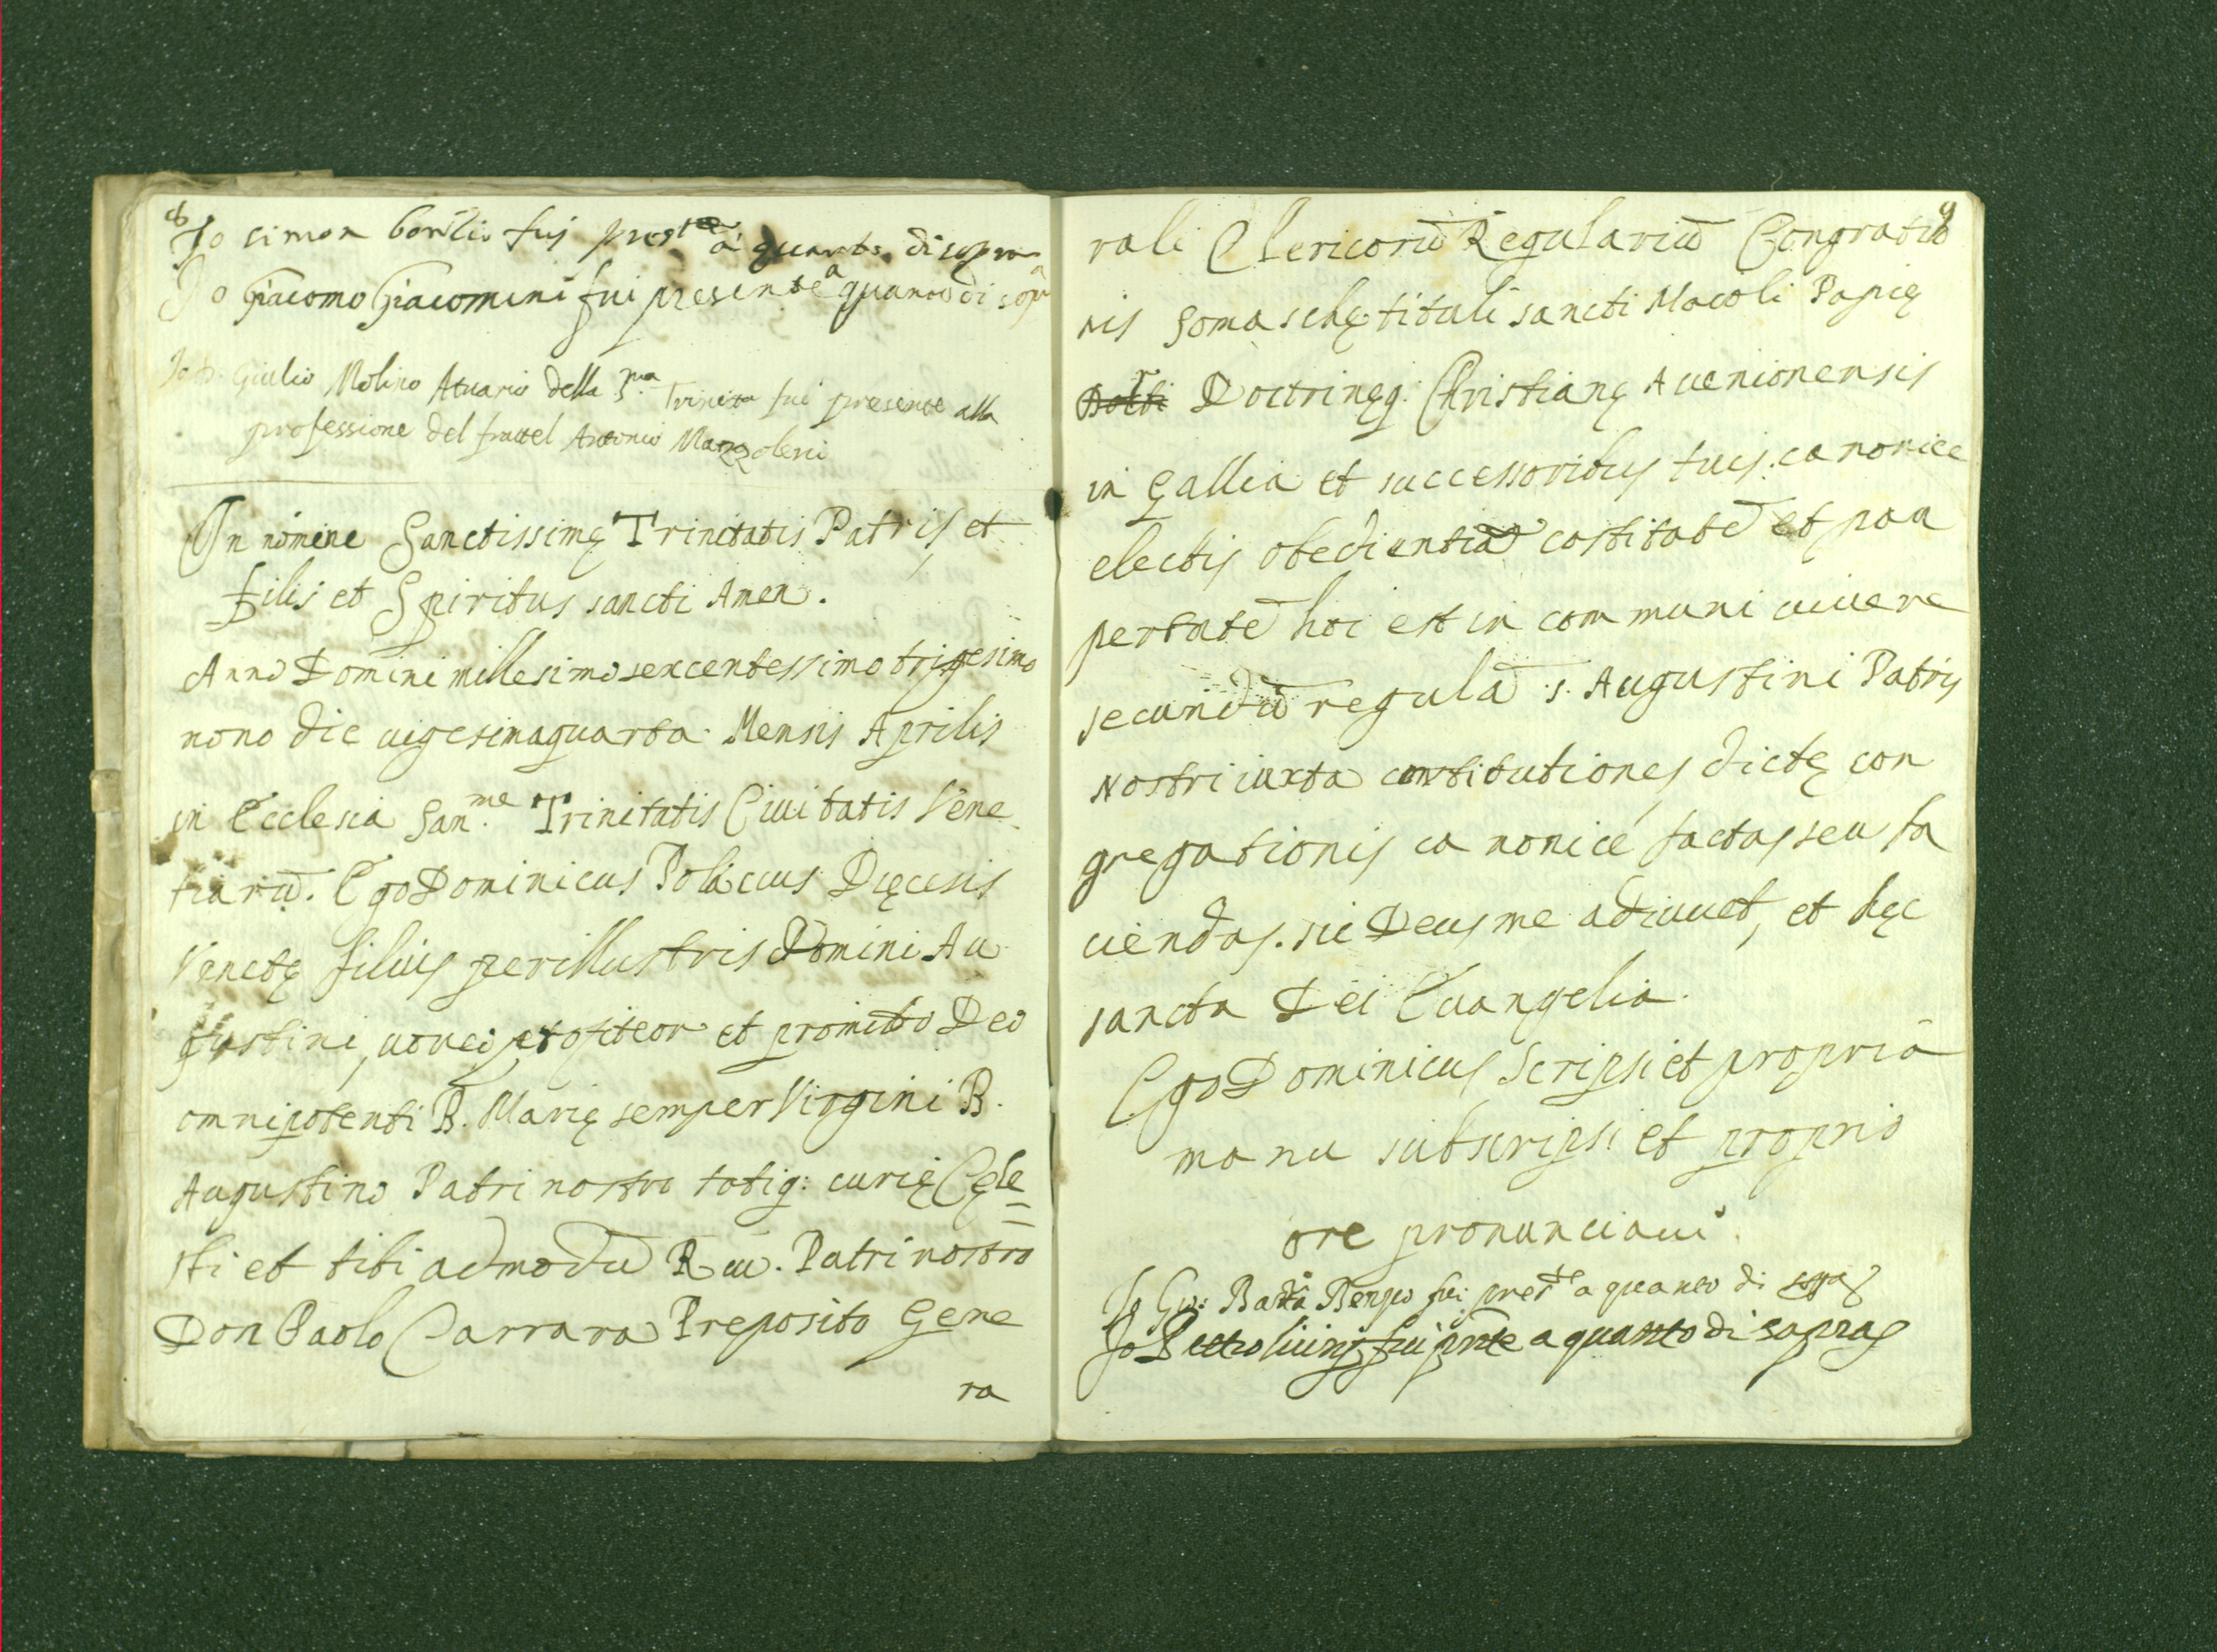 8
Io simon fui pres.te à quanto disopra
Io Giacomo Giacomini fui presente a quanto di sop.a
Io D. Giulio Molino Atuario della S.ma Trinita fui presente alla
professione del fratel Antonio Mazzoleni
In nomine Sanctissimę Trinitatis Patris et
filis et Spiritus sancti Amen.
Anno Domini millesimo sexcentessimo trigesimo
nono die uigesimaquarta Mensis Aprilis
in Ecclesia San.me Trinitatis Ciuitatis Vene
tiarū. Ego Dominicus Dięcesis
Venetę filius perillustris Domini Au
gustini, uoueo profiteor et promitto Deo
omnipotenti B. Marię semper Virgini B.
Augustino Patri nostro totiq: curię Cęle=
sti et tibi admodū Reu. Patri nostro
Don Paolo Carrara Preposito Gene
ra
9
rali Clericorū Regulariū Congratio
nis Somaschę tituli sancti Macoli Papię
Doctrinęq: Christianę Auenionensis
in Gallia et successoribus tuis canonice
electis obedientiā castitatē et pau
pertatē hoc est in communi uiuere
secundū regulā s. Augustini Patris
Nostri iuxta constitutiones dictę con
gregationis canonice factas seu fa
ciendas. sic Deus me adiuuet, et hęc
sancta Dei Euangelia.
Ego Dominicus Scripsi et propria
manu subscripsi et proprio
ore pronunciaui
Io Gio: Batta fui pres.te a quanto di sopra
Io Pietro fui pnte a quanto di sopra